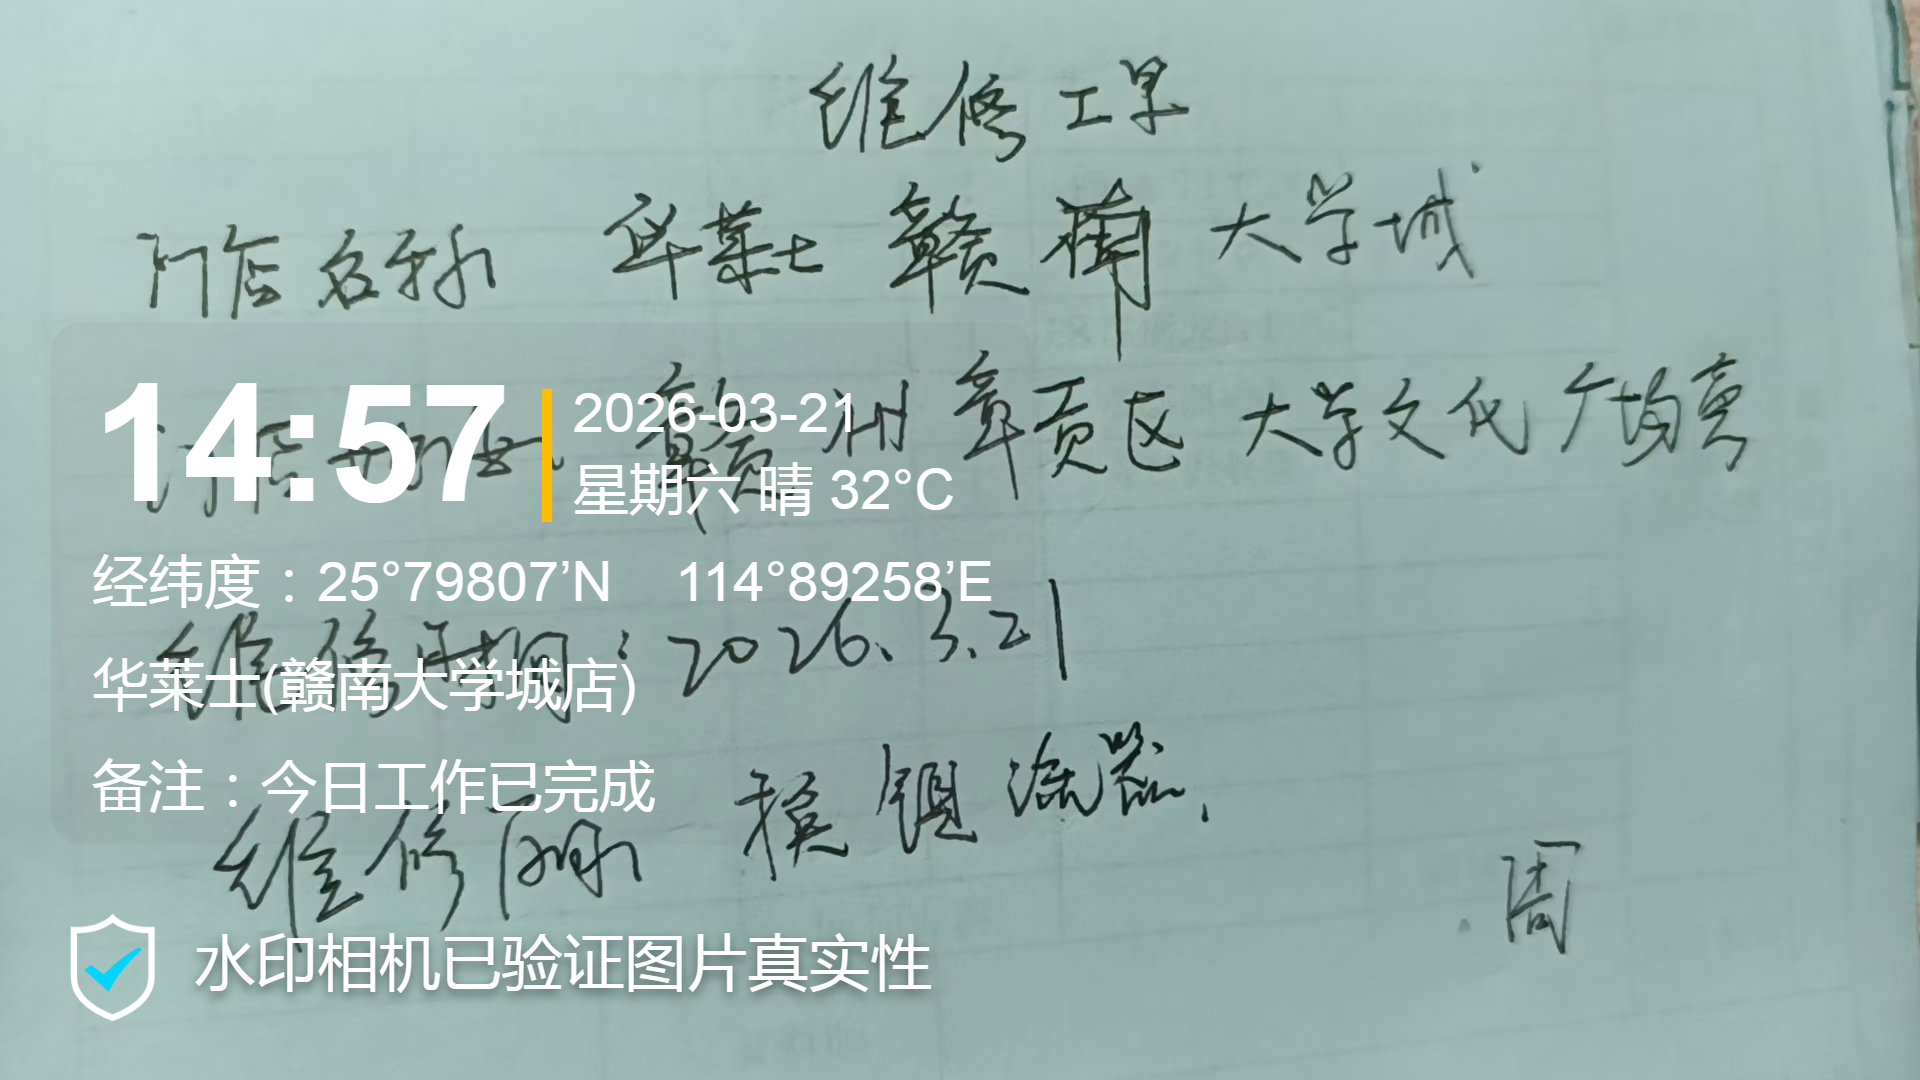 维修工单
门店名称 华莱士赣南大学城
14:57
2026-03-21
星期六 晴 32°C
门店地址 赣州章贡区大学文化广场旁
经纬度：25°79807’N 114°89258’E
维修时间：2026.3.21
华莱士(赣南大学城店)
备注：今日工作已完成
维修 换 器.
周
水印相机已验证图片真实性